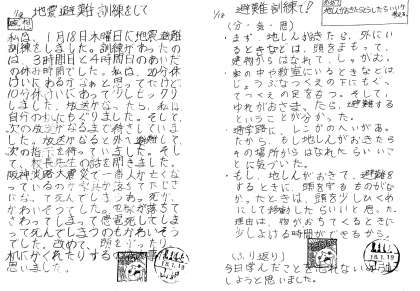 1/18 地震避難訓練をして
私は、1月18日木曜日に地震避難
訓練をしました。訓練があったの
は、3時間目と4時間目のあいだ
の休け時間でした。私は、20分休け
いにあるかなぁと思ってたけど
10分休けいにあってびっくりし
しました。放送がなったら、私は
自分の机にもどりました。そして、
次の放送がなるまで待っていま
した。放送がなると外へ避難して、
次の指示を待っていました。そし
て、校長先生の話を聞きました。
阪神淡路大震災で一番人が亡くな
っているのが家具が落ちて下じき
にな、て死んでしまう
かわいそうでした。電線が落ちて
さわってしまって感電死してしま
って死んでしまうのもかわいそう
でした。改めて、頭をまもったり
机にかくれたりするのが大事だと
思いました。
1/18 避難訓練で!!
(分・気・思)
・まず、地しんがおきたら、外にい
るときなどは、頭をまもって、
建物からはなれて、しゃがむ。
家の中や教室にいるときなどは
じょうぶなつくえの下にもぐり、
つくえの足をもつ。そして、
ゆれがおさまったら、避難する
ということが分かった。
・通学路に、レンガのへいがある。
だから、もし地しんがおきたら
その場所からはなれたらいいこ
とに気づいた。
・もし、地しんがおきて、避難を
するときに、頭を守るものがな
かったときは、頭を少しひくめ
にして移動したらいいと思った。
理由は、物がおちてくるときに
少しよける時間ができるから。
(ふり返り)
今日学んだことを忘れないように
しようと思いました。
18.1.19
18.1.19